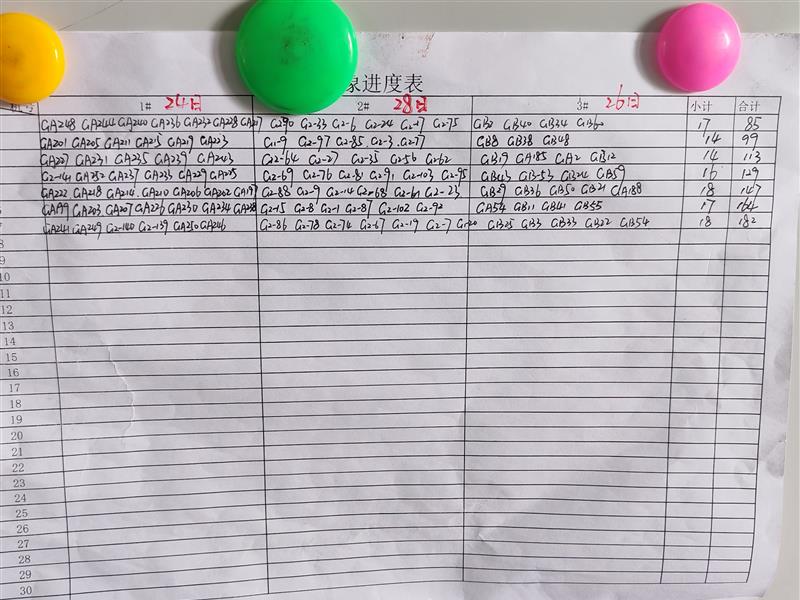 象进度表
1# 24日 2# 28日 3# 26日 小计 合计
GA248 GA244 GA240 GA236 GA232 GA228 G2-90 G2-33 G2-6 G2-24 G2-17 G2-75 GB2 GB40 GB34 GB60 17 85
GA201 GA205 GA211 GA215 GA219 GA223 G1-9 G2-97 G2-85 G2-3 G2-77 GB8 GB38 GB48 14 99
GA227 GA231 GA235 GA239 GA243 G2-64 G2-27 G2-35 G2-56 G2-62 GB19 GA185 GA2 GB12 14 113
G2-141 GA252 GA237 GA233 GA229 GA225 G2-69 G2-76 G2-81 G2-91 G2-103 G2-95 GB43 GB-53 GB24 GB59 16 129
GA222 GA218 GA214 GA210 GA206 GA202 GA197 G2-88 G2-9 G2-14 G2-68 G2-61 G2-23 GB29 GB36 GB50 GB21 GA188 18 147
GA199 GA203 GA207 GA226 GA230 GA234 GA238 G2-15 G2-8 G2-1 G2-87 G2-102 G2-92 GA54 GB11 GB41 GB55 17 164
7 GA241 GA249 G2-140 G2-139 GA250 GA246 G2-86 G2-78 G2-74 G2-67 G2-19 G2-7 GB25 GB3 GB33 GB22 GB54 18 182
8
9
10
11
12
13
14
15
16
17
18
19
20
21
22
23
24
25
26
27
28
29
30